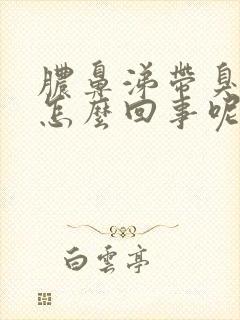 膿鼻涕帶臭
怎麼回事呢
白雲亭